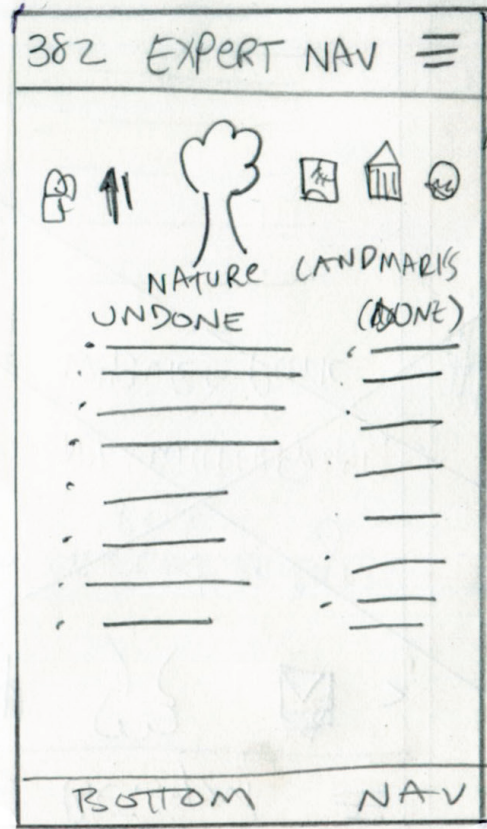 382 EXPERT NAV
NATURE LANDMARKS
UNDONE (DONE)
BOTTOM NAV